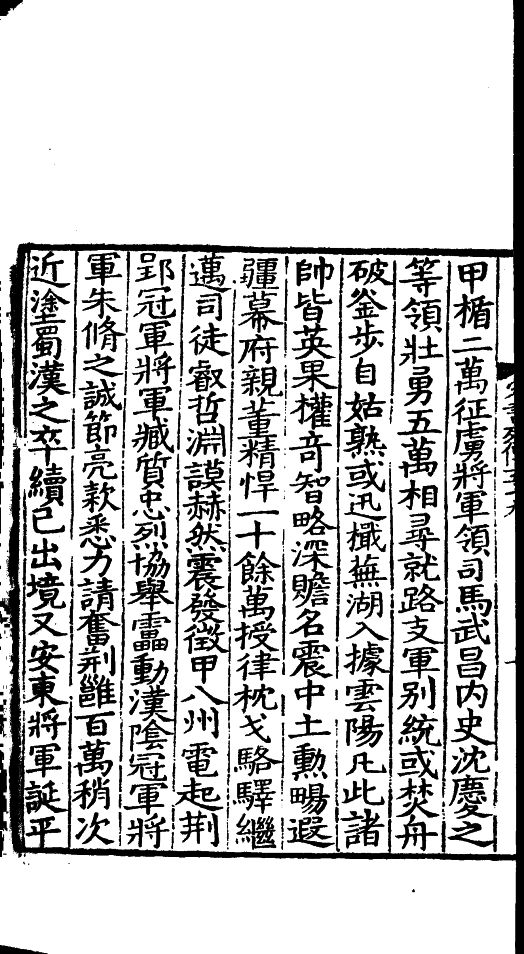 甲楯二萬征虜將軍領司馬武昌内史沈慶之
等領壯勇五萬相尋就路支軍別統或焚舟
破釜步自姑熟或迅檝蕪湖入據雲陽凡此諸
帥皆英果權奇智略深贍名震中土勲暢遐
疆幕府親董精悍一十餘萬授律枕戈駱驛繼
邁司徒叡哲淵謨赫然震發徵甲八州電起荆
郢冠軍將軍臧質忠烈協舉靁動漢陰冠軍將
軍朱脩之誠節亮款悉力請奮荆雝百萬稍次
近塗蜀漢之卒續已出境又安東將軍誕平